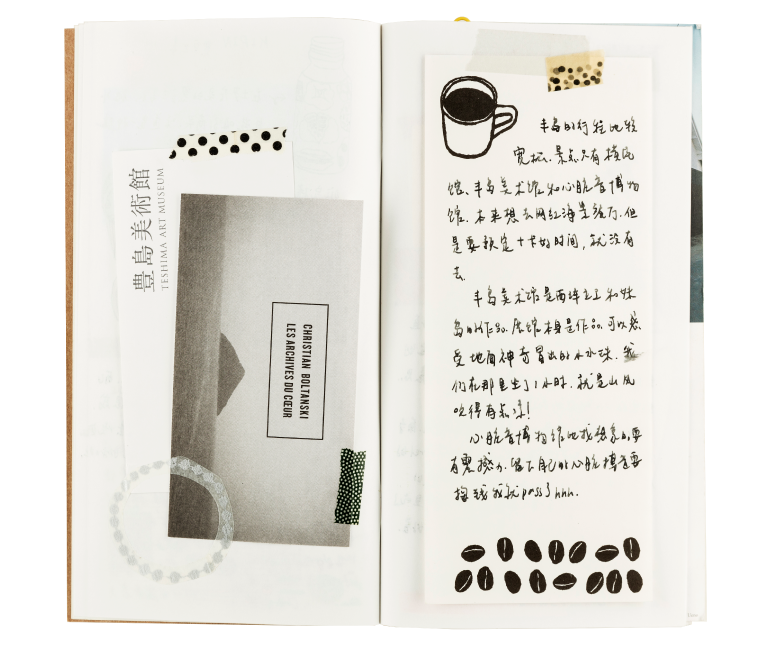 豊島美術館
TESHIMA ART MUSEUM
CHRISTIAN BOLTANSKI
LES ARCHIVES DU CŒUR
丰岛的行程比较
宽松.景点只有横尾
馆、丰岛美术馆和心脏音博物
馆.本来想去网红海景餐厅.但
是要预定+卡的时间,就没有
去.
丰岛美术馆是西泽立卫和妹
岛的作品.展馆本身是作品.可以感
受地面神奇冒出的小水珠.我
们在那里坐了1小时.就是山风
吹得有点凉!
心脏音博物馆比我想象的要
有震撼力.留下自己的心脏音要
我就pass了hhh.